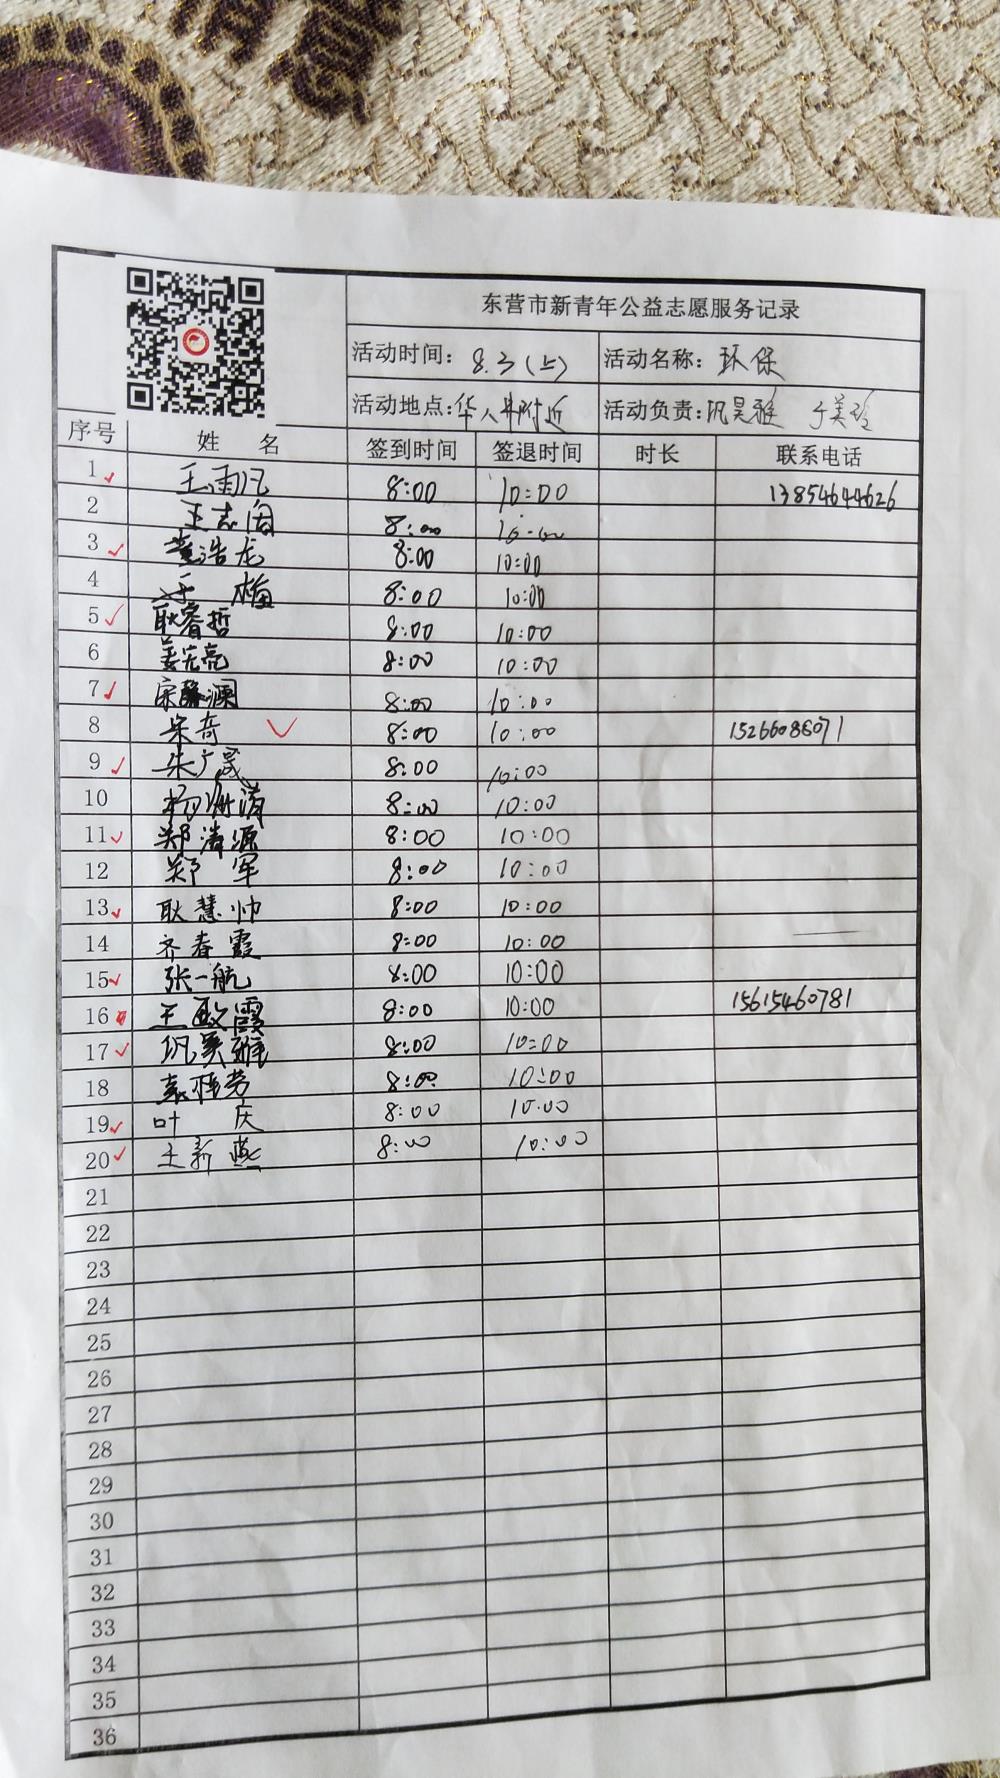 东营市新青年公益志愿服务记录
活动时间：8.3(上) 活动名称：环保
活动地点：华人井附近 活动负责：巩昊雅 于美玲
序号 姓 名 签到时间 签退时间 时长 联系电话
1 王雨凡 8:00 10:00 13854644626
2 王志国 8:00 10:00
3 董浩龙 8:00 10:00
4 于 梅 8:00 10:00
5 耿睿哲 8:00 10:00
6 姜宪亮 8:00 10:00
7 宋馥澜 8:00 10:00
8 宋奇 8:00 10:00 15266086071
9 朱广晟 8:00 10:00
10 杨 8:00 10:00
11 郑潾源 8:00 10:00
12 郑 军 8:00 10:00
13 耿慧帅 8:00 10:00
14 齐春霞 8:00 10:00
15 张一航 8:00 10:00
16 王敏霞 8:00 10:00 15615460781
17 巩昊雅 8:00 10:00
18 8:00 10:00
19 叶 庆 8:00 10:00
20 王新燕 8:00 10:00
21
22
23
24
25
26
27
28
29
30
31
32
33
34
35
36